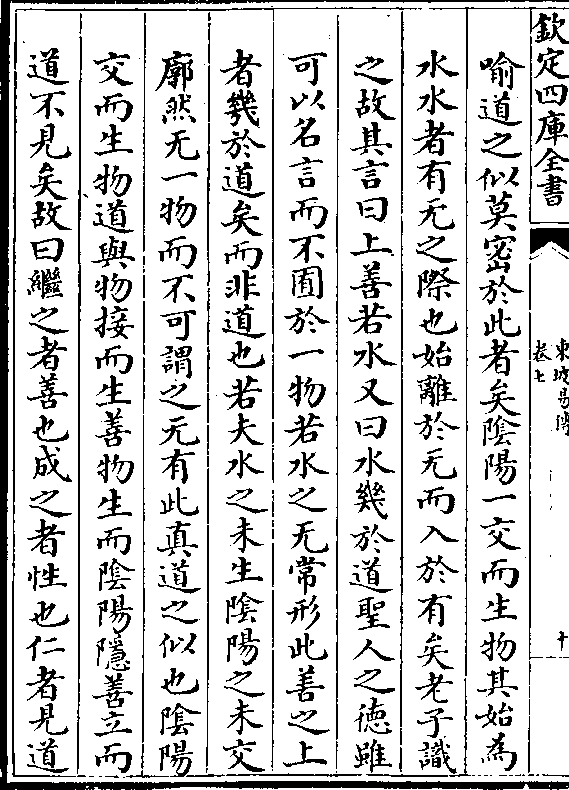 欽定四庫全書
東坡易傳
卷七
十
喻道之似莫密於此者矣陰陽一交而生物其始為
水水者有无之際也始離於无而入於有矣老子識
之故其言曰上善若水又曰水幾於道聖人之德雖
可以名言而不囿於一物若水之无常形此善之上
者幾於道矣而非道也若夫水之未生陰陽之未交
廓然无一物而不可謂之无有此真道之似也陰陽
交而生物道與物接而生善物生而陰陽隱善立而
道不見矣故曰繼之者善也成之者性也仁者見道